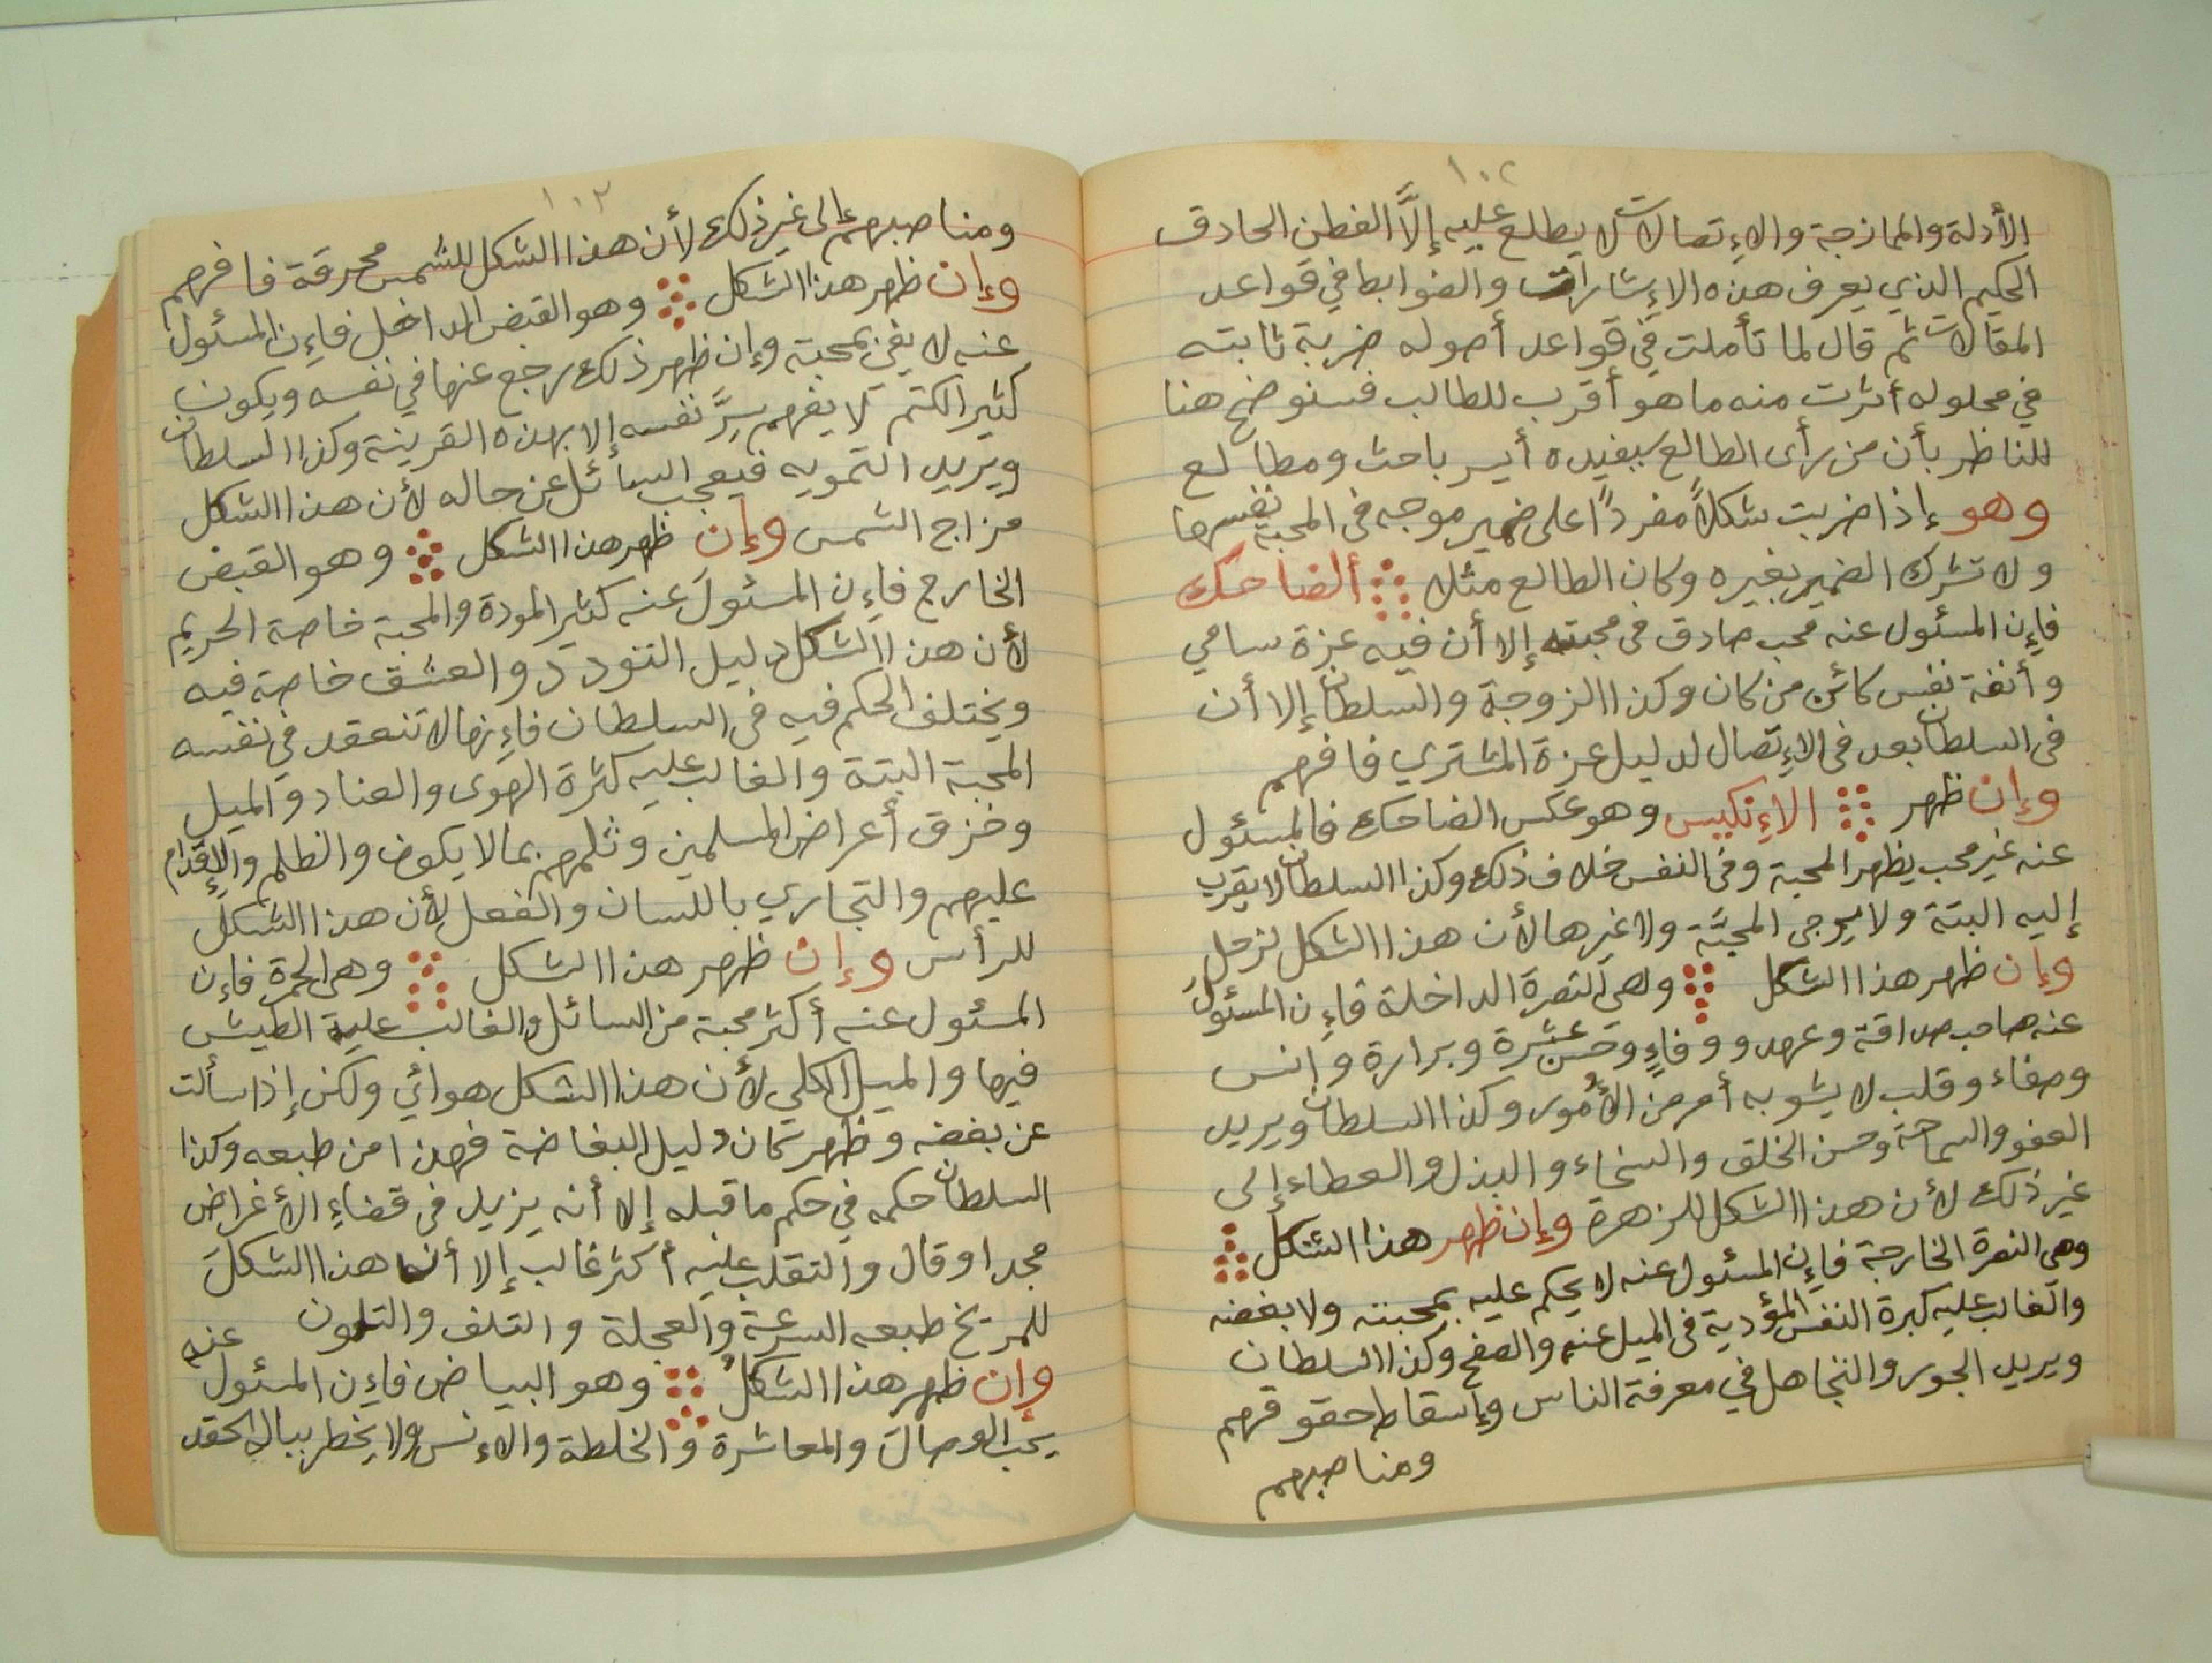 ١٠٢
الأدلة والممازجة والاٍتصالات لا يطلع عليه إلَّا الفطن الحادق
الحكيم الذي يعرف هذه الاٍشارات والضوابط في قواعد
المقالات ثم قال لما تأملت في قواعد أصوله ضربة ثابته
في محلوله أثرت منه ما هو أقرب للطالب فسنوضح هنا
للناظر بأن من رأى الطالع سيفيده أيسر باحث ومطالع
وهو إذا ضربت شكلاً مفرداً على ضمير موجه فى المحبة نفسها
ولا تشرك الضمير بغيره وكان الطالع مثلا ألضاحك
فإن المسئول عنه محب صادق فى محبته إلا أن فيه عزة سامي
وأنفة نفس كائن من كان وكذا الزوجة والسلطان إلا أن
فى السلطان بعد فى الاٍتصال لدليل عزة المشتري فافهم
وإن ظهر الاٍنكيس وهو عكس الضاحك فالمسئول
عنه غير محب يظهر المحبة وفى النفس خلاف ذلك وكذا السلطان لا يقرب
إليه البتة ولا يرجى المحبَّة ولا غيرها لأن هذا الشكل لزحل
وإن ظهر هذا الشكل وهى النصرة الداخلة فإن المسئول
عنه صاحب صداقة وعهد ووفاءٍ وحسن عشرة وبرارة وانس
وصفاء وقلب لا يشوبه أمر من الأمور وكذا السلطان ويريد
العفو والسماحة وحسن الخلق والسخاء والبذل والعطاء إلى
غير ذلك لأن هذا الشكل للزهرة وإن ظهر هذا الشكل
وهى النصرة الخارجة فإن المسئول عنه لا يحكم عليه بمحبته ولا بغضه
والغالب عليه كبرة النفس المؤدية فى الميل عنه والصفح وكذا السلطان
ويريد الجور والتجاهل في معرفة الناس وإسقاط حقوقهم
ومناصبهم
١٠٣
ومناصبهم إلى غير ذلك لأن هذا الشكل للشمس محرقة فافهم
وإن ظهر هذا الشكل وهو القبض الداخل فإن المسئول
عنه لا يفي بمحبة وإن ظهر ذلك رجع عنها في نفسه ويكون
كثير الكتم لا يفهم سِرَّ نفسه إلا بهذه القرينة وكذا السلطان
ويريد التمويه فيعجب السائل عن حاله لأن هذا الشكل
مزاج الشمس وإن ظهر هذا الشكل وهو القبض
الخارج فإن المسئول عنه كثير المودة والمحبة خاصة الحريم
لأن هذا الشكل دليل التودد والعشق خاصة فيه
ويختلف الحكم فيه فى السلطان فإنها لا تنعقد في نفسه
المحبة البتة والغالب عليه كثرة الهوى والعناد والميل
وخزق أعراض المسلمين وثلمهم بما لا يكون والظلم والإقدام
عليهم والتجاري باللسان والفعل لأن هذا الشكل
للرأس وإن ظهر هذا الشكل وهى الحمرة فإن
المسئول عنه أكثر محبة من السائل والغالب عليه الطيش
فيها والميل الكلي لأن هذا الشكل هوائي ولكن إذا سألت
عن بغضه وظهر كان دليل البغاضة فهذا من طبعه وكذا
السلطان حكمه في حكم ما قبله إلا أنه يزيد فى قضاءٍ الأغراض
مجدا وقال والتقلب عليه أكثر غالب إلا أن هذا الشكل
للمريخ طبعه السرعة والعجلة والتلف والتلون
وإن ظهر هذا الشكل وهو البياض فإن المسئول عنه
يحب الوصال والمعاشرة والخلطة والاٍنس ولا يخطر بباله الحقد